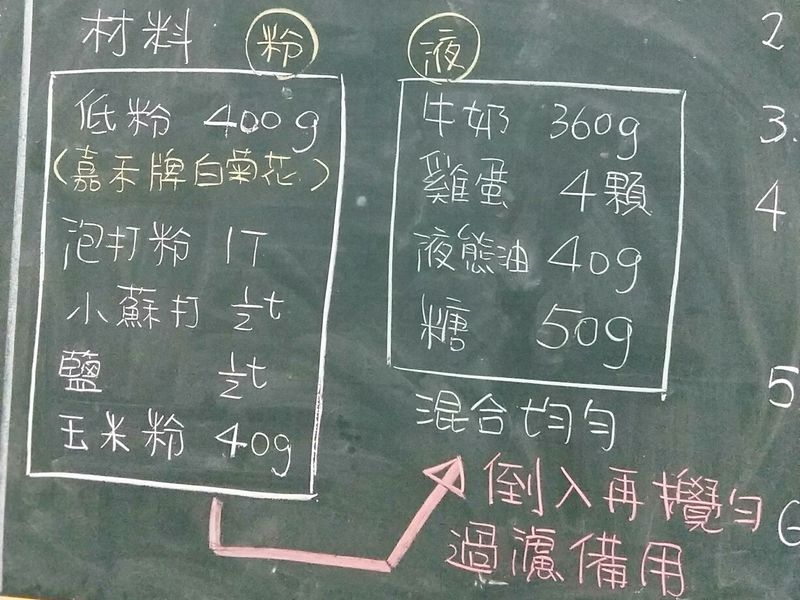 材料 粉
低粉 400g
(嘉禾牌白菊花)
泡打粉 1T
小蘇打 ½t
鹽 ½t
玉米粉 40g
液
牛奶 360g
雞蛋 4顆
液態油 40g
糖 50g
混合均勻
倒入再攪勻
過濾備用
2
3.
4
5
6